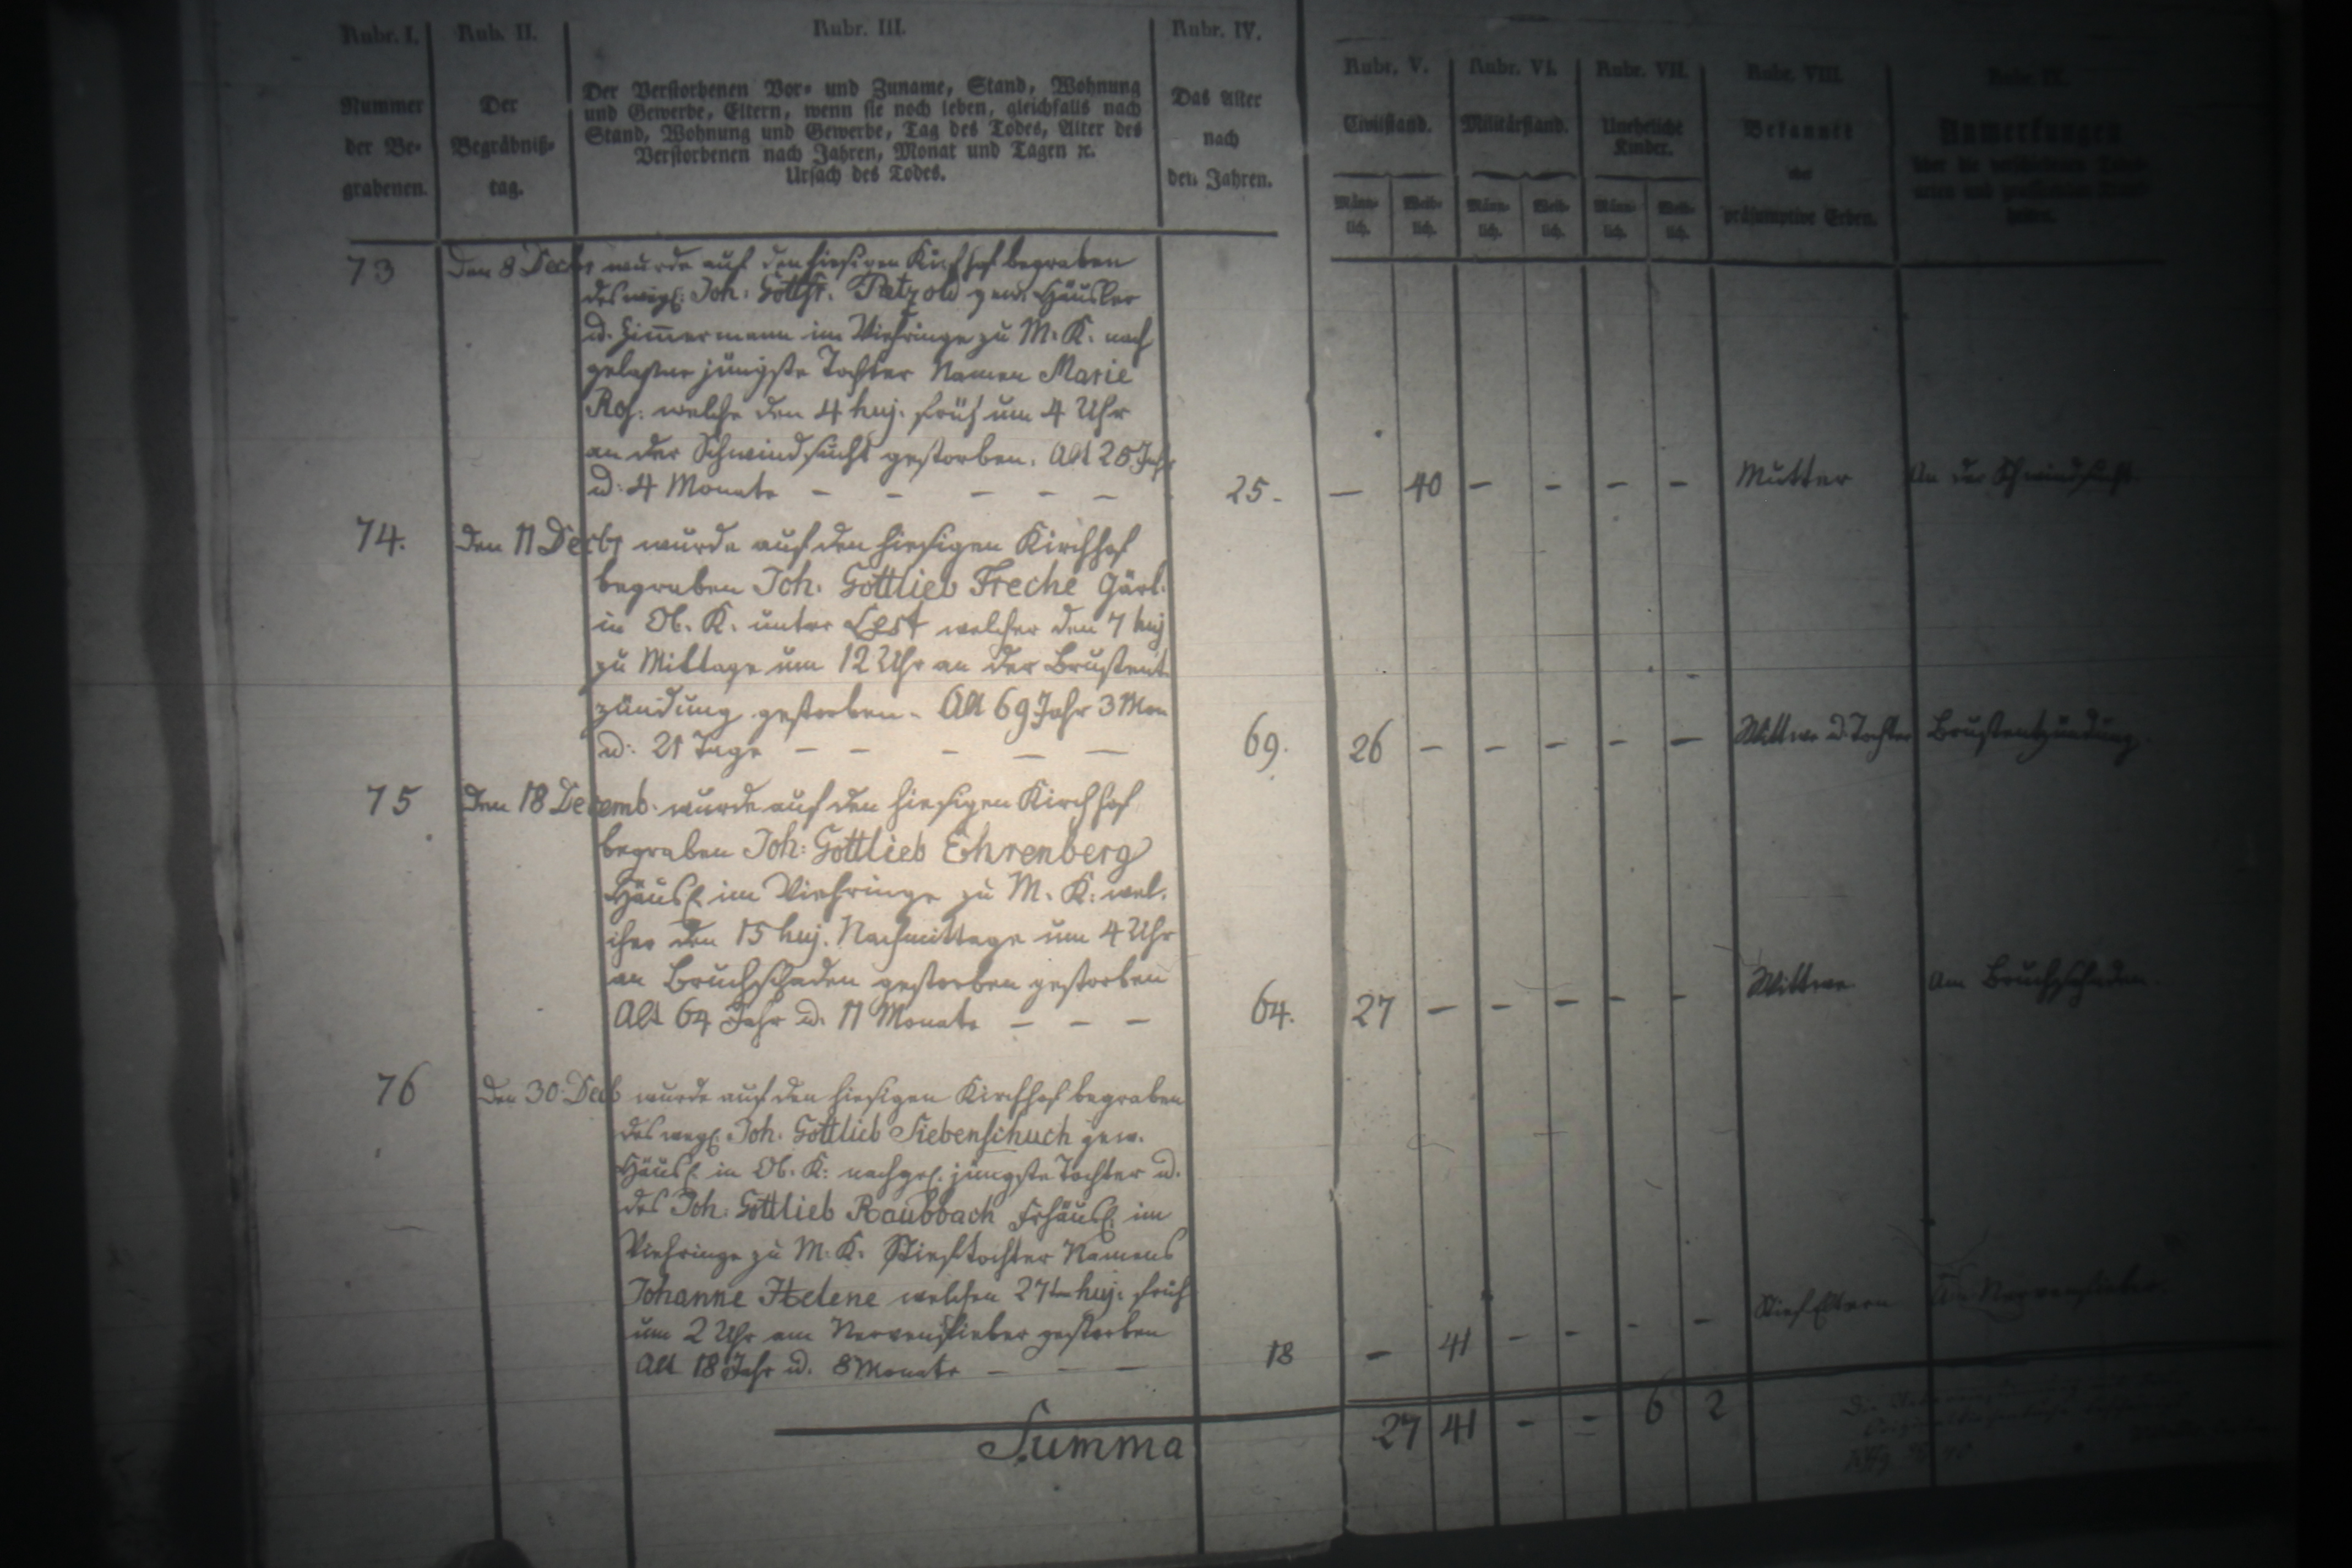 Rubr. I.
Nummer
der Be-
grabenen.
Rub. II.
Der
Begräbniß-
tag.
Rubr. III.
Der Verstorbenen Vor- und Zuname, Stand, Wohnung
und Gewerbe, Eltern, wenn sie noch leben, gleichfalls nach
Stand, Wohnung und Gewerbe, Tag des Todes, Alter des
Verstorbenen nach Jahren, Monat und Tagen ꝛc.
Ursach des Todes.
Rubr. IV.
Das Alter
nach
den Jahren.
Rubr. V.
Civilstand.
Männ-
lich.
Weib-
lich.
Rubr. VI.
Militärstand.
Männ-
lich.
Weib-
lich.
Rubr. VII.
Uneheliche
Kinder.
Männ-
lich.
Weib-
lich.
Rubr. VIII.
Bekannte
oder
präsumptive Erben.
Rubr. IX.
Anmerkungen
73 Den 8 Decbr wurde auf den hiesigen Kirchhof begraben
des weyl: Joh: Gottfr. Patzold gew. Häusler
u. Zim̅ermann im Viehringe zu M. K. nach
gelaßne jüngste Tochter Namen Marie
Ros: welche den 4 huj. früh um 4 Uhr
an der Schwindsucht gestorben. Alt 25 Jahr
u: 4 Monate - - - - -
25. - 40 - - - - Mutter An der Schwindsucht
74. Den 11 Decbr wurde auf den hiesigen Kirchhof
begraben Joh. Gottlieb Freche Gärt.
in Ob. K. unter welcher den 7 huj
zu Mittage um 12 Uhr an der Brustent
zündung gestorben. Alt 69 Jahr 3 Mon
u: 21 Tage - - - - -
69. 26 - - - - - Wittwe u. Tochter Brustentzündung.
75 Den 18 Decemb. wurde auf den hiesigen Kirchhof
begraben Joh: Gottlieb Ehrenberg
Häusl. im Viehringe zu M. K. wel.
cher den 15 huj. Nachmittage um 4 Uhr
an Bruchschaden gestorben gestorben
Alt 64 Jahr u. 11 Monate - - -
64. 27 - - - - - Wittwe. Am Bruchschaden.
76 Den 30 Decb wurde auf den hiesigen Kirchhof begraben
des weyl. Joh. Gottlieb Siebenschuch gew.
Häusl. in Ob. K: nachgel. jüngste Tochter u.
des Joh: Gottlieb Raubbach Frhäusl. im
Viehringe zu M. K. Stieftochter Namens
Johanne Helene welchen 27ten huj. früh
um 2 Uhr am Nervenfieber gestorben
Alt 18 Jahr u. 8 Monate - - -
18 - 41 - - - - Stief Eltern Am Nervenfieber.
Summa 27 41 - - 6 2